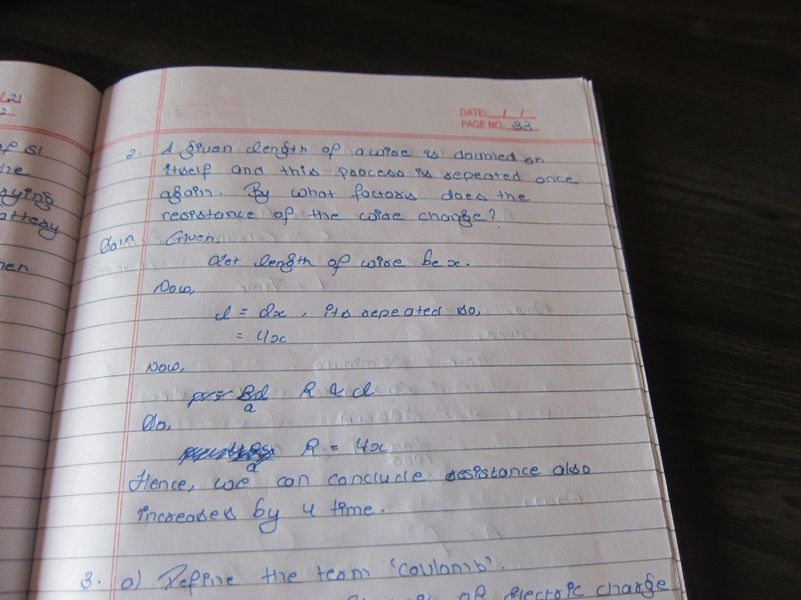 DATE: / /
PAGE NO. 33
2. A given length of a wire is doubled on
itself and this process is repeated once
again. By what factors does the
resistance of the wire change?
Soln Given,
Let length of wire be x.
Now,
l = 2x, its repeated so,
= 4x
Now,
R ∝ l
So,
R = 4x
Hence, we can conclude resistance also
increases by 4 time.
3. a) Define the term 'coulomb'.
of electric charge
of SI
attery